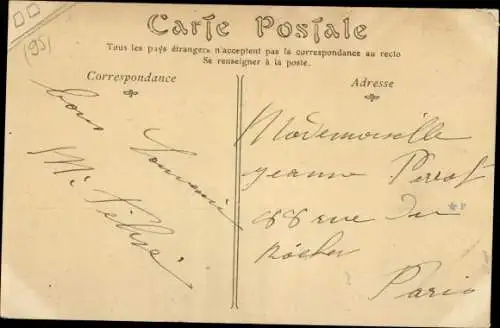 Carte Postale
Tous les pays étrangers n'acceptent pas la correspondance au recto
Se renseigner à la poste.
(95)
Correspondance
Bons Souvenirs
Adresse
Mademoiselle
Jeanne Perrot
88 rue du
Rocher
Paris